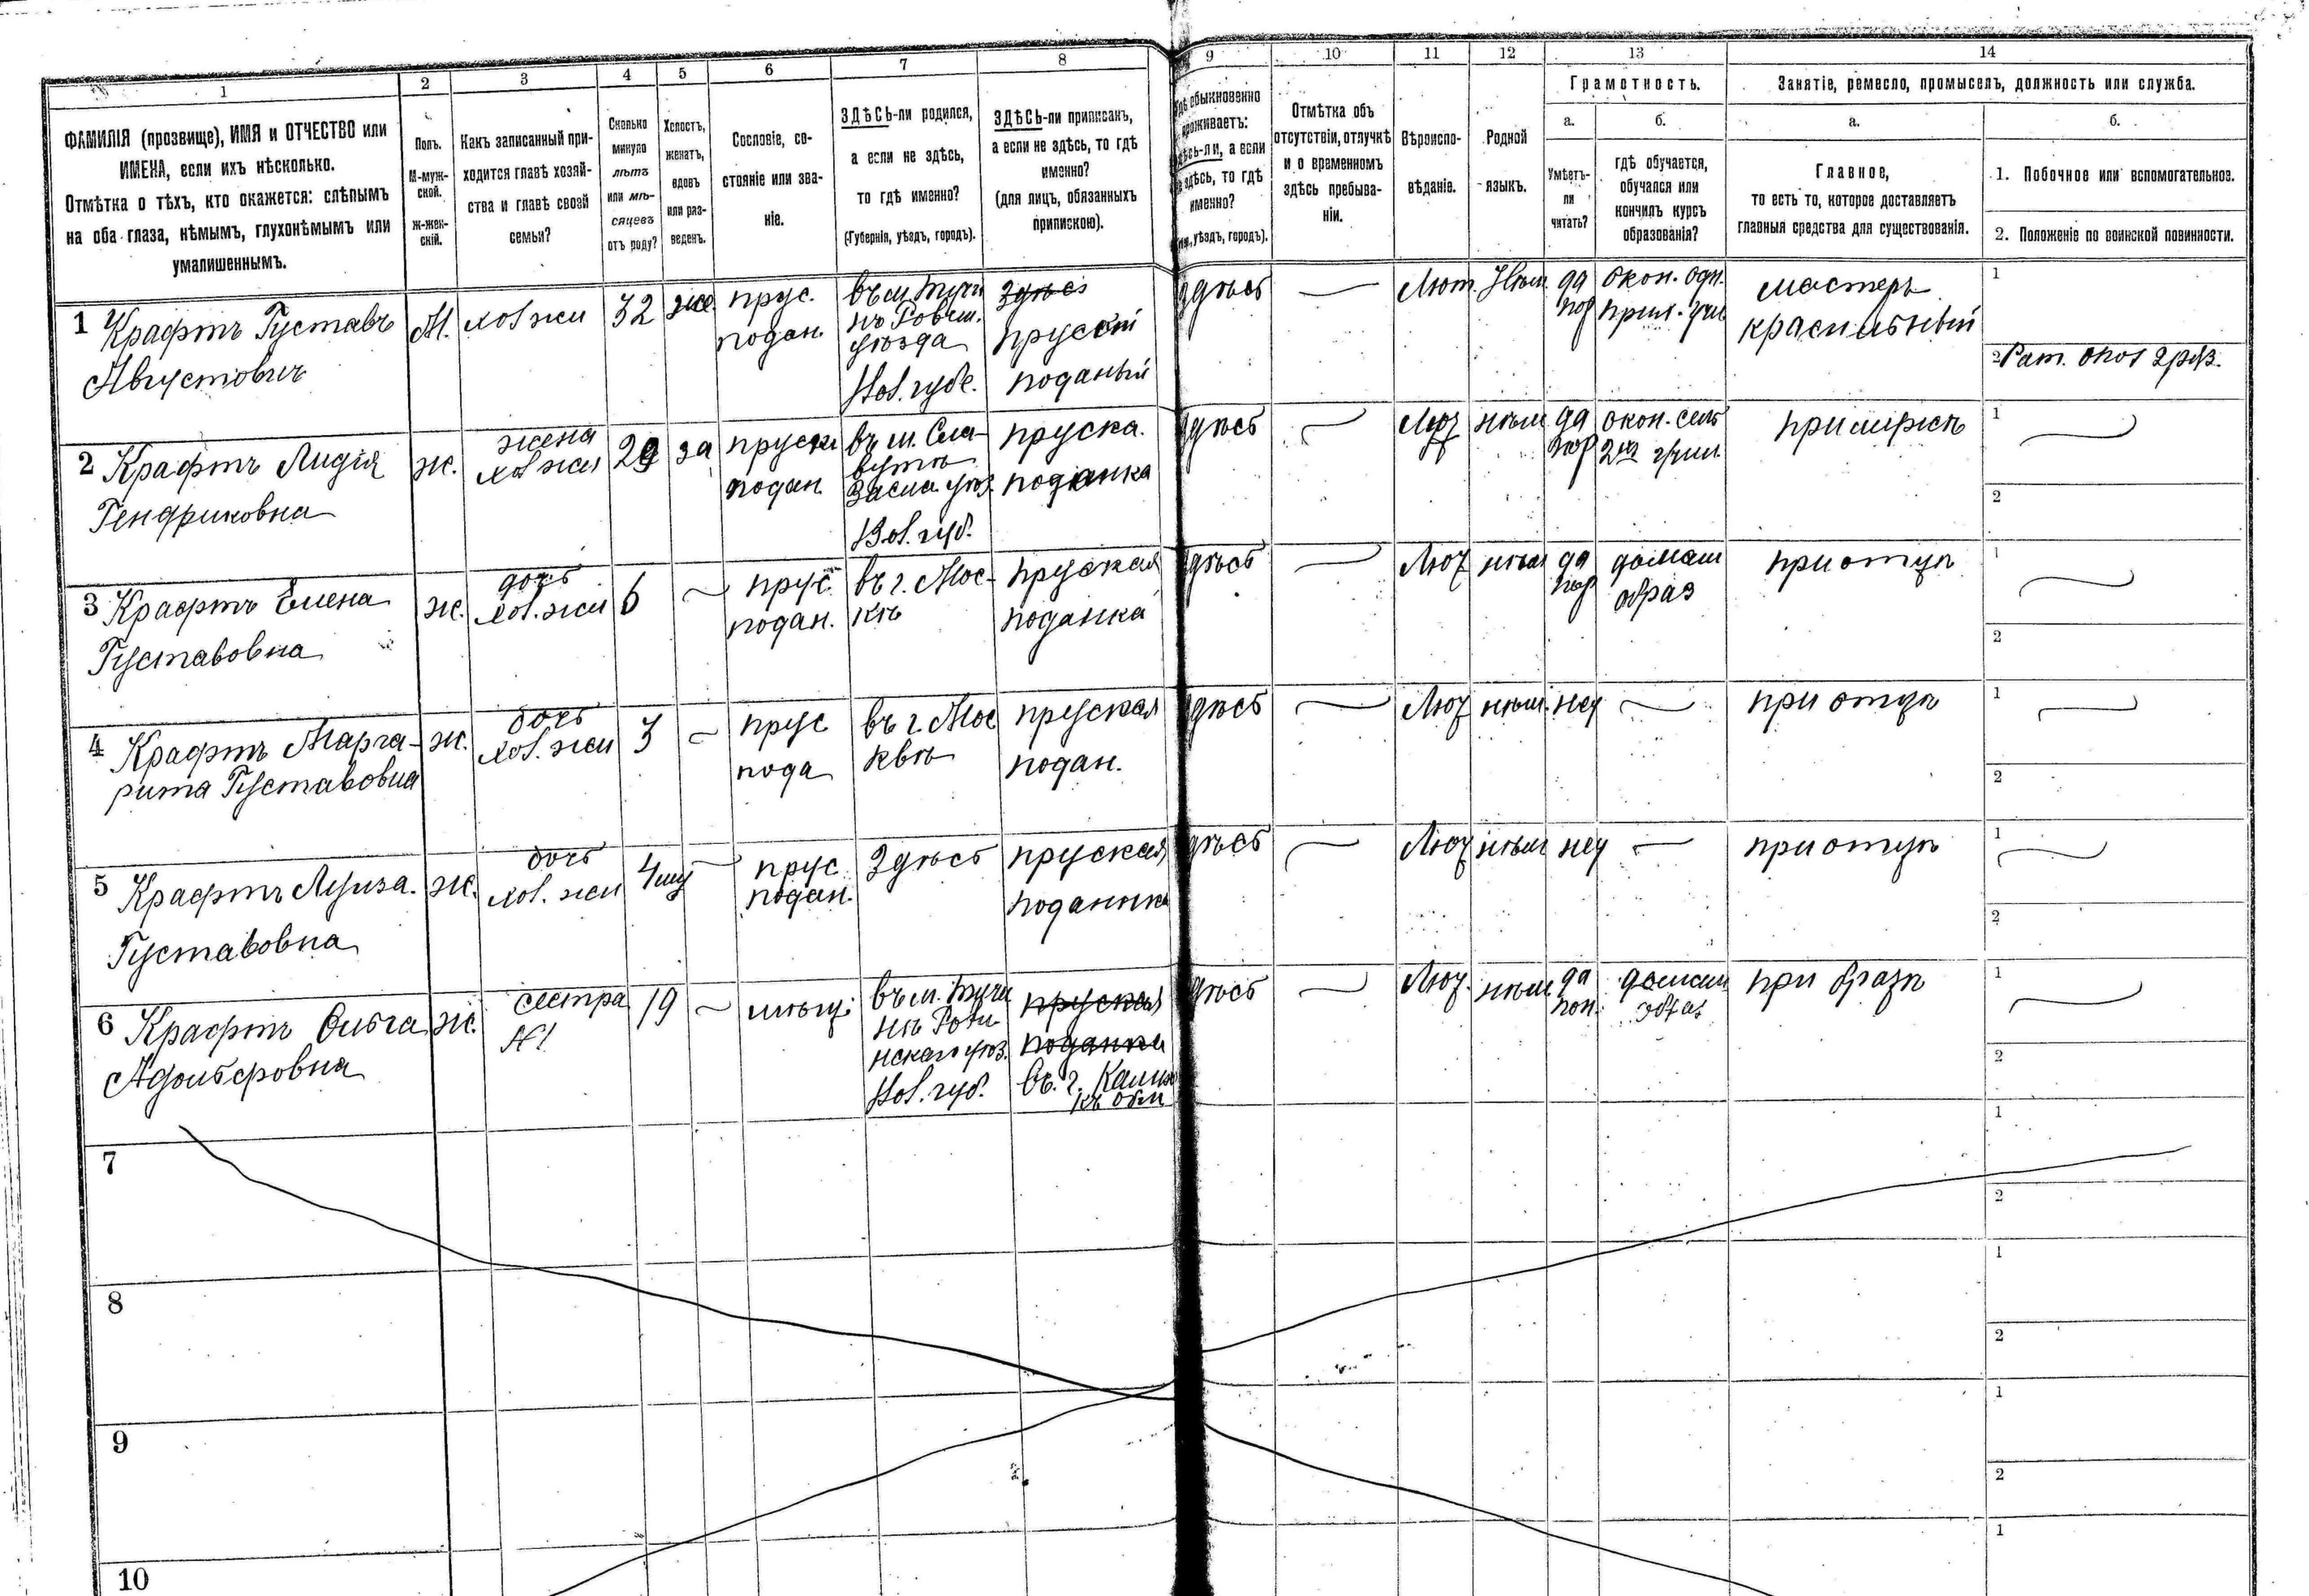 1
2
3
4
5
6
7
8
9
10
11
12
13
14
ФАМИЛІЯ (прозвище), ИМЯ и ОТЧЕСТВО или
ИМЕНА, если ихъ нѣсколько.
Отмѣтка о тѣхъ, кто окажется: слѣпымъ
на оба глаза, нѣмымъ, глухонѣмымъ или
умалишеннымъ.
Полъ.
М-муж-
ской.
ж-жен-
скій.
Какъ записанный при-
ходится главѣ хозяй-
ства и главѣ своей
семьи?
Сколько
минуло
лѣтъ
или мѣ-
сяцевъ
отъ роду?
Холостъ,
женатъ,
вдовъ
или раз-
веденъ.
Сословіе, со-
стояніе или зва-
ніе.
ЗДѢСЬ-ли родился,
а если не здѣсь,
то гдѣ именно?
(Губернія, уѣздъ, городъ).
ЗДѢСЬ-ли приписанъ,
а если не здѣсь, то гдѣ
именно?
(для лицъ, обязанныхъ
припискою).
обыкновенно
проживаетъ:
здѣсь-ли, а если
не здѣсь, то гдѣ
именно?
уѣздъ, городъ).
Отмѣтка объ
отсутствіи, отлучкѣ
и о временномъ
здѣсь пребыва-
ніи.
Вѣроиспо-
вѣданіе.
Родной
языкъ.
Грамотность.
а.
Умѣетъ-
ли
читать?
б.
гдѣ обучается,
обучался или
кончилъ курсъ
образованія?
Занятіе, ремесло, промыселъ, должность или служба.
а.
Главное,
то есть то, которое доставляетъ
главныя средства для существованія.
б.
1. Побочное или вспомогательное.
2. Положеніе по воинской повинности.
1 Крафтъ Густавъ
Августовичъ
М.
32
же.
прус.
подан.
уѣзда
Вол. губе.
здѣсь
прускій
поданый
здѣсь
Лют.
Нѣм.
да
окон. одн.
мастеръ
красильный
1
2 Рат. опол 2 раз.
2 Крафтъ Лидія
Гендриковна
ж.
жена
29
за
подан.
въ м. Сла-
вутѣ
Засла. уѣз.
Вол. губ.
пруска.
поданка
здѣсь
Лют
нѣм
да
окон. сель
при мужѣ
1
2
3 Крафтъ Елена
Густавовна
ж.
дочь
6
прус
подан.
въ г. Мос-
квѣ
пруская
поданка
здѣсь
Лют
нѣм
да
домаш
образ
при отцѣ
1
2
4 Крафтъ Марга-
рита Густавовна
ж.
дочь
3
прус
пода
въ г. Мос
квѣ
пруская
подан.
здѣсь
Лют
нѣм.
нет
при отцѣ
1
2
5 Крафтъ Луиза.
Густавовна
ж.
дочь
прус
подан.
здѣсь
пруская
поданка
здѣсь
Лют
нѣм
нет
при отцѣ
1
2
6 Крафтъ Ольга
Адольфовна
ж.
сестра
№1
19
мѣщ.
Вол. губ.
пруская
поданка
здѣсь
Лют.
нѣм
да
домаш
при братѣ
1
2
7
1
2
8
1
2
9
1
2
10
1